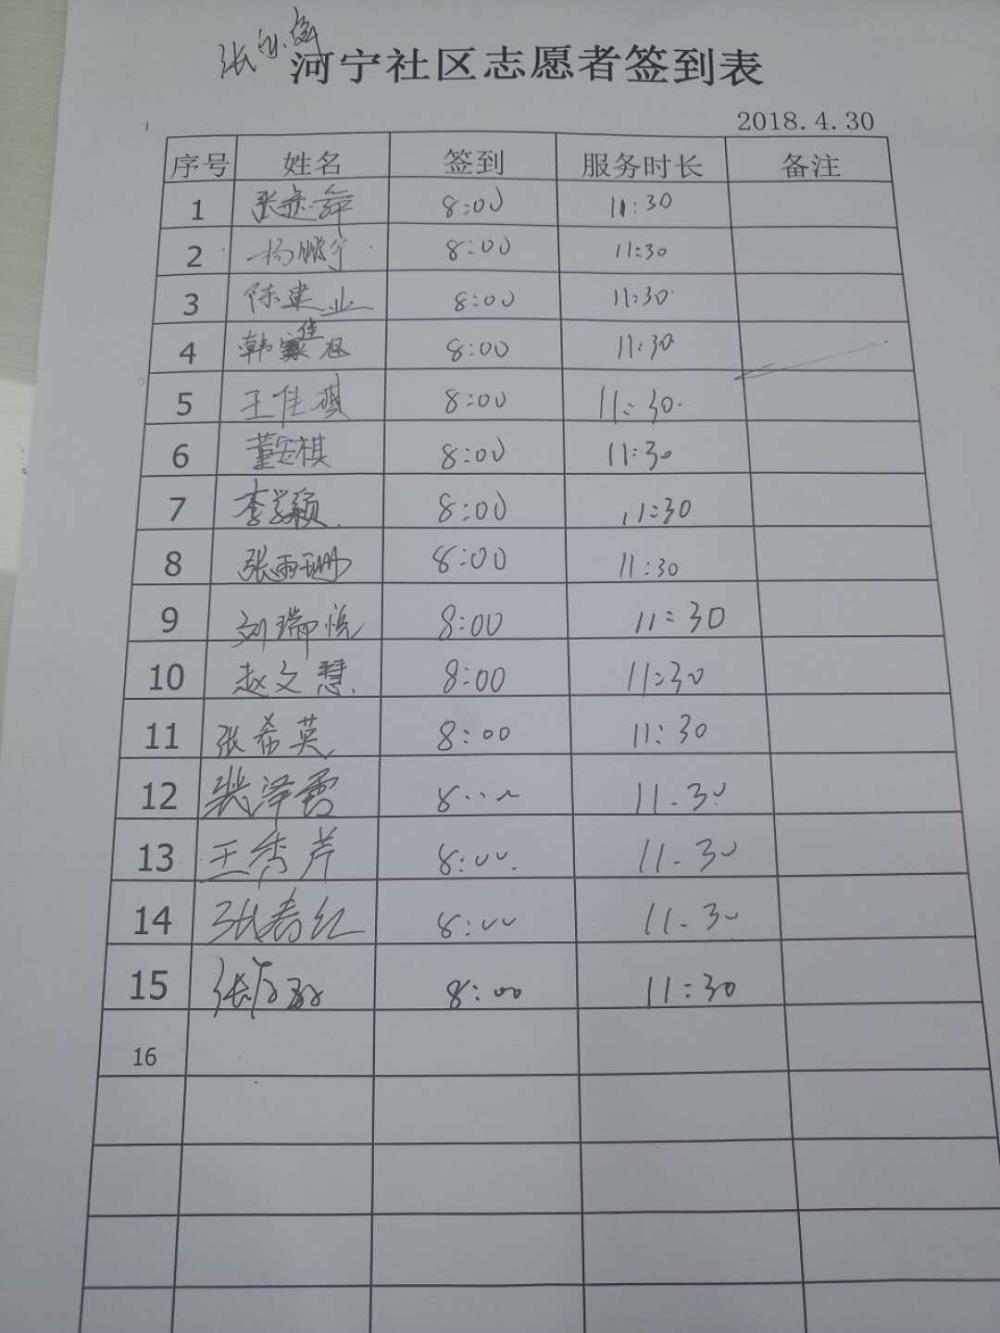 河宁社区志愿者签到表
2018.4.30
序号 姓名 签到 服务时长 备注
1 张 8:00 11:30
2 杨鹏宇 8:00 11:30
3 陈建业 8:00 11:30
4 韩佳 8:00 11:30
5 王佳琪 8:00 11:30
6 董安祺 8:00 11:30
7 李颖 8:00 11:30
8 张雨珊 8:00 11:30
9 刘瑞悦 8:00 11:30
10 赵文慧 8:00 11:30
11 张希英 8:00 11:30
12 裴泽雪 8:00 11.30
13 王秀芹 8:00 11.30
14 张春红 8:00 11.30
15 张 8:00 11:30
16